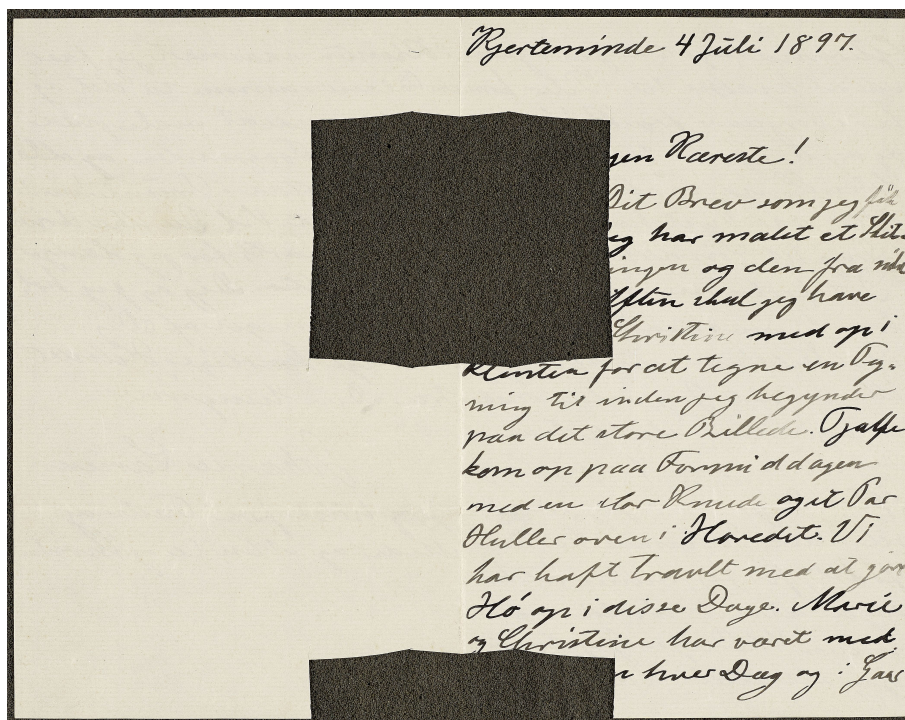 Kjerteminde 4 Juli 1897.
gen Kæreste!
Dit Brev som jeg fik
jeg har malet et Skit-
ingen og den fra
Aften skal jeg have
Christine med op i
Klinten for at tegne en Teg-
ning til inden jeg begynder
paa det store Billede. Tjalfe
kom op paa Formiddagen
med en stor Knude og et Par
Huller oven i Hovedet. Vi
har haft travlt med at gøre
Hö op i disse Dage. Marie
og Christine har været med
n hver Dag og i Gaar